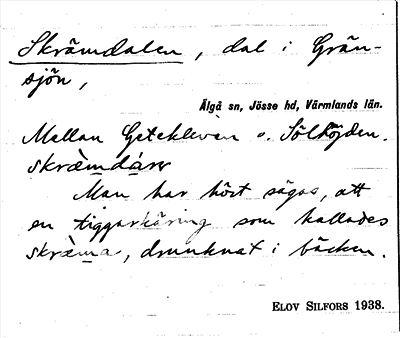 Skrämdalen, dal i Grän-
sjön,
Älgå sn, Jösse hd, Värmlands län.
Mellan Getekleven o. Sölhöjden.
Man har hört sägas, att
en tiggarkäring som kallades
skræ̀ma, drunknat i bäcken.
ELOV SILFORS 1938.